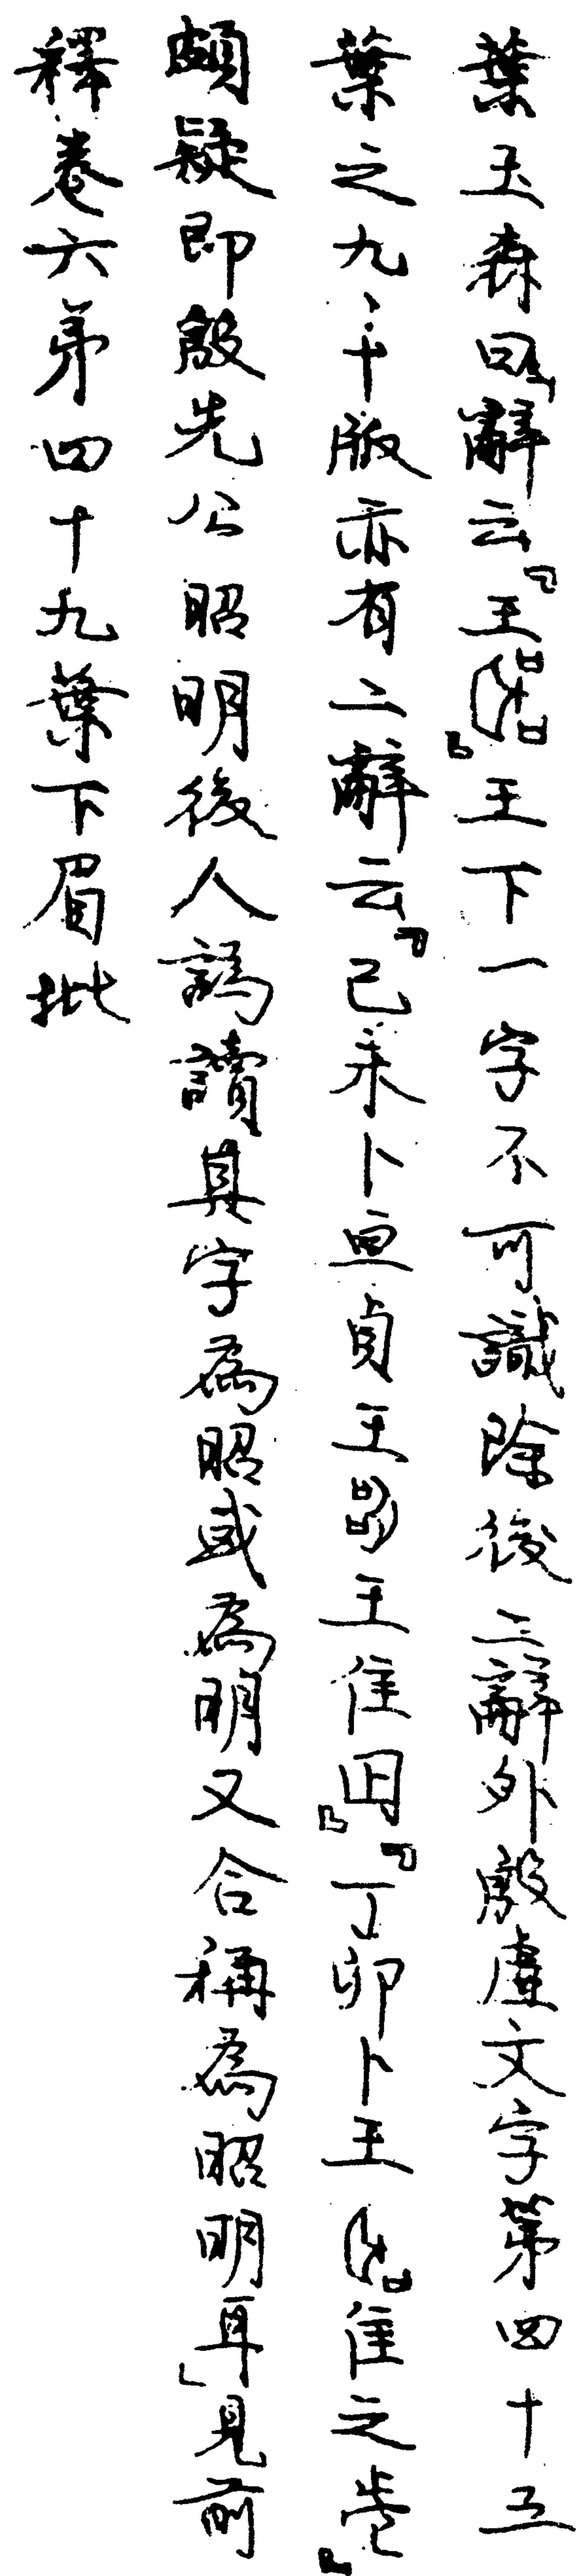 葉玉森曰「辭云『王』王下一字不可識除後二辭外殷虛文字第四十五
葉之九、十版亦有二辭云『己未卜亘貞王王隹囚』『丁卯卜王隹之』
頗疑即殷先公昭明後人譌讀其字為昭或為明又合稱為昭明耳」見前
釋卷六第四十九葉下眉批